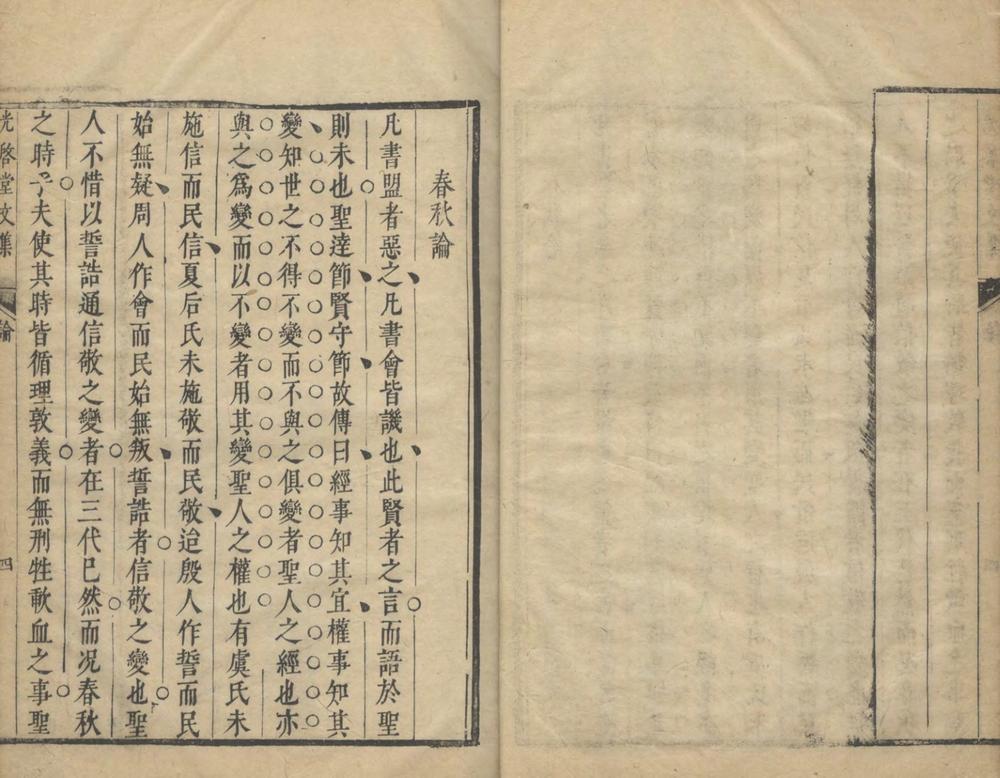 春秋論
凡書盟者惡之凡書會皆譏也此賢者之言而語於聖
則未也聖達節賢守節故傳曰經事知其宜權事知其
變知世之不得不變而不與之俱變者聖人之經也亦
與之爲變而以不變者用其變聖人之權也有虞氏未
施信而民信夏后氏未施敬而民敬迨殷人作誓而民
始無疑周人作會而民始無叛誓誥者信敬之變也聖
人不惜以誓誥通信敬之變者在三代已然而况春秋
之時乎夫使其時皆循理敦義而無刑牲歃血之事聖
光啓堂文集 論 四